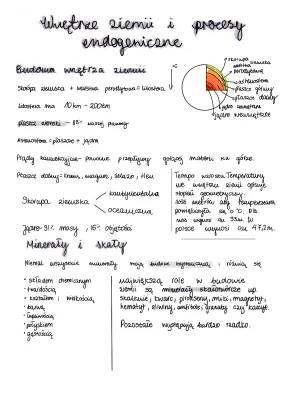 Wnętrze ziemii i procesy
endogeniczne
Budowa wnętrza ziemii
skorupa ziemska
warstwa perydotytowa
astenosfera
płaszcz górny
płaszcz dolny
jądro zewnętrzne
jądro wewnętrzne
Skorupa ziemska + warstwa perydotytowa = litosfera
Litosfera ma 10 km - 200 km
płaszcz ziemski - 68% naszej planety
Astenosfera = płaszcz + jądro
Prądy konwekcyjne - powolne przepływy gorącej materii ku górze.
Płaszcz dolny - krzem, magnez, żelazo, tlen
Skorupa ziemska
kontynentalna
oceaniczna
Jądro - 31% masy, 16% objętości
Tempo wzrostu Temperatury
we wnętrzu ziemi opisuje
stopień geotermiczny.
ilość metrów aby temperatura
powiększyła się o °C. Dla
nas wynosi ok. 33m. W
polsce wynosi ok 47,2 m.
Minerały i skały
Niemal wszystkie minerały mają budowę krystaliczną i różnią się
· składem chemicznym
· twardością
· kształtem i wielkością
· barwą
· łupliwością
· połyskiem
· gęstością
największą rolę w budowie
ziemi są minerały skałotwórcze np.
skalenie, kwarc, pirokseny, miki, magnetyt,
hematyt, oliwiny, amfibole, granaty czy kalcyt.
Pozostałe występują bardzo rzadko.